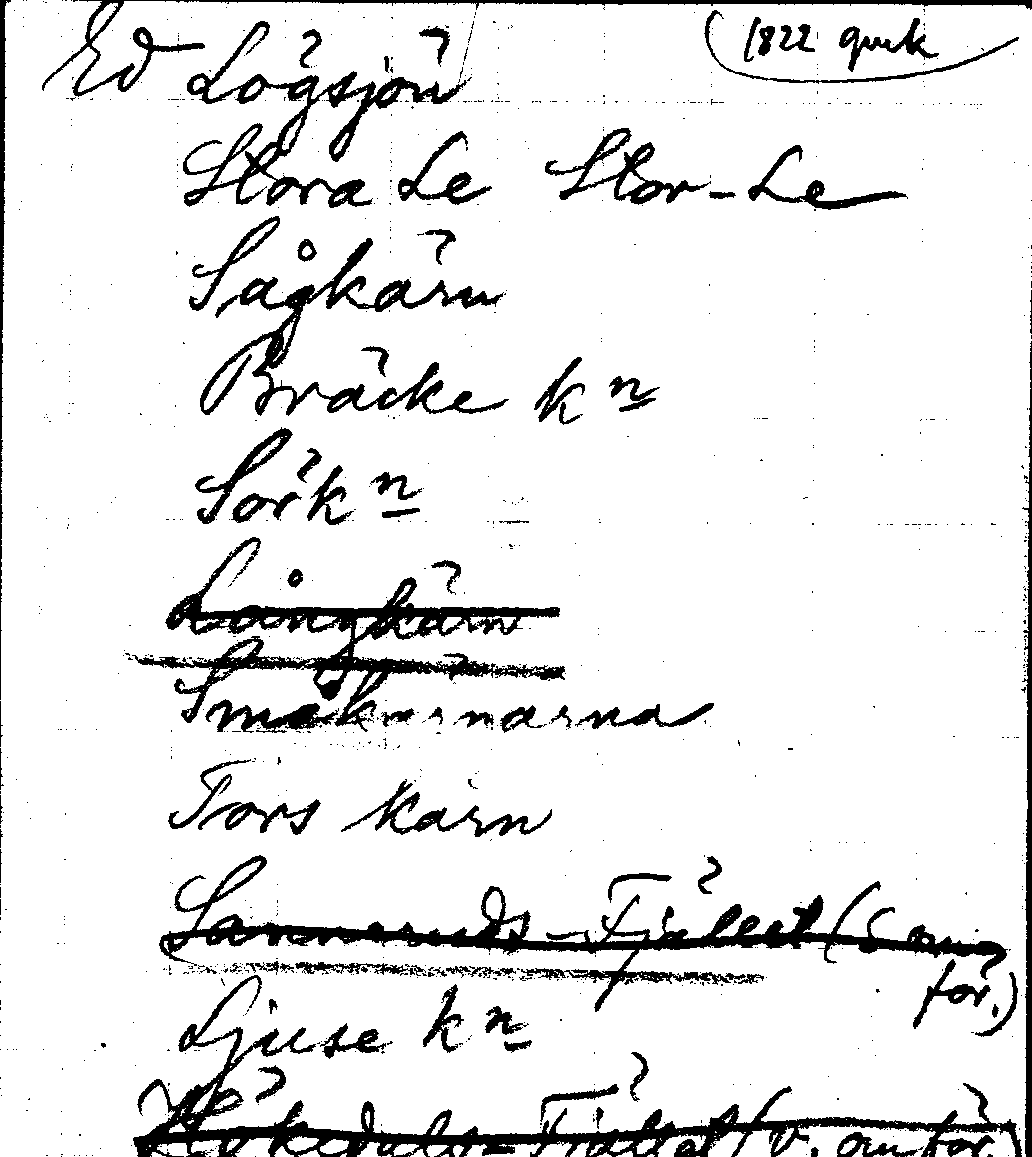 Ed Lögsjön 1822 quik
Stora Le Stor-Le
Sågkärn
Bräcke kn
Sörkn
Långkärn
Småkärnarna
Tors kärn
Sanneruds-Fjället (S om
för.)
Ljuse kn
Hökedals-Fjället (v. om för.)